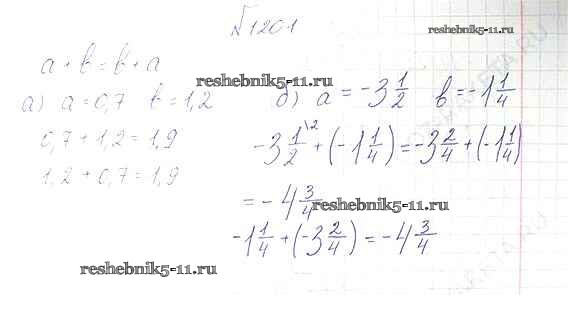 √1201
reshebnik5-11.ru
a + b = b + a
reshebnik5-11.ru
а) a = 0,7 b = 1,2
б) a = -3 1/2 b = -1 1/4
0,7 + 1,2 = 1,9
-3 1/2 \2 + (-1 1/4) = -3 2/4 + (-1 1/4)
1,2 + 0,7 = 1,9
= -4 3/4
reshebnik5-11.ru
-1 1/4 + (-3 2/4) = -4 3/4
reshebnik5-11.ru